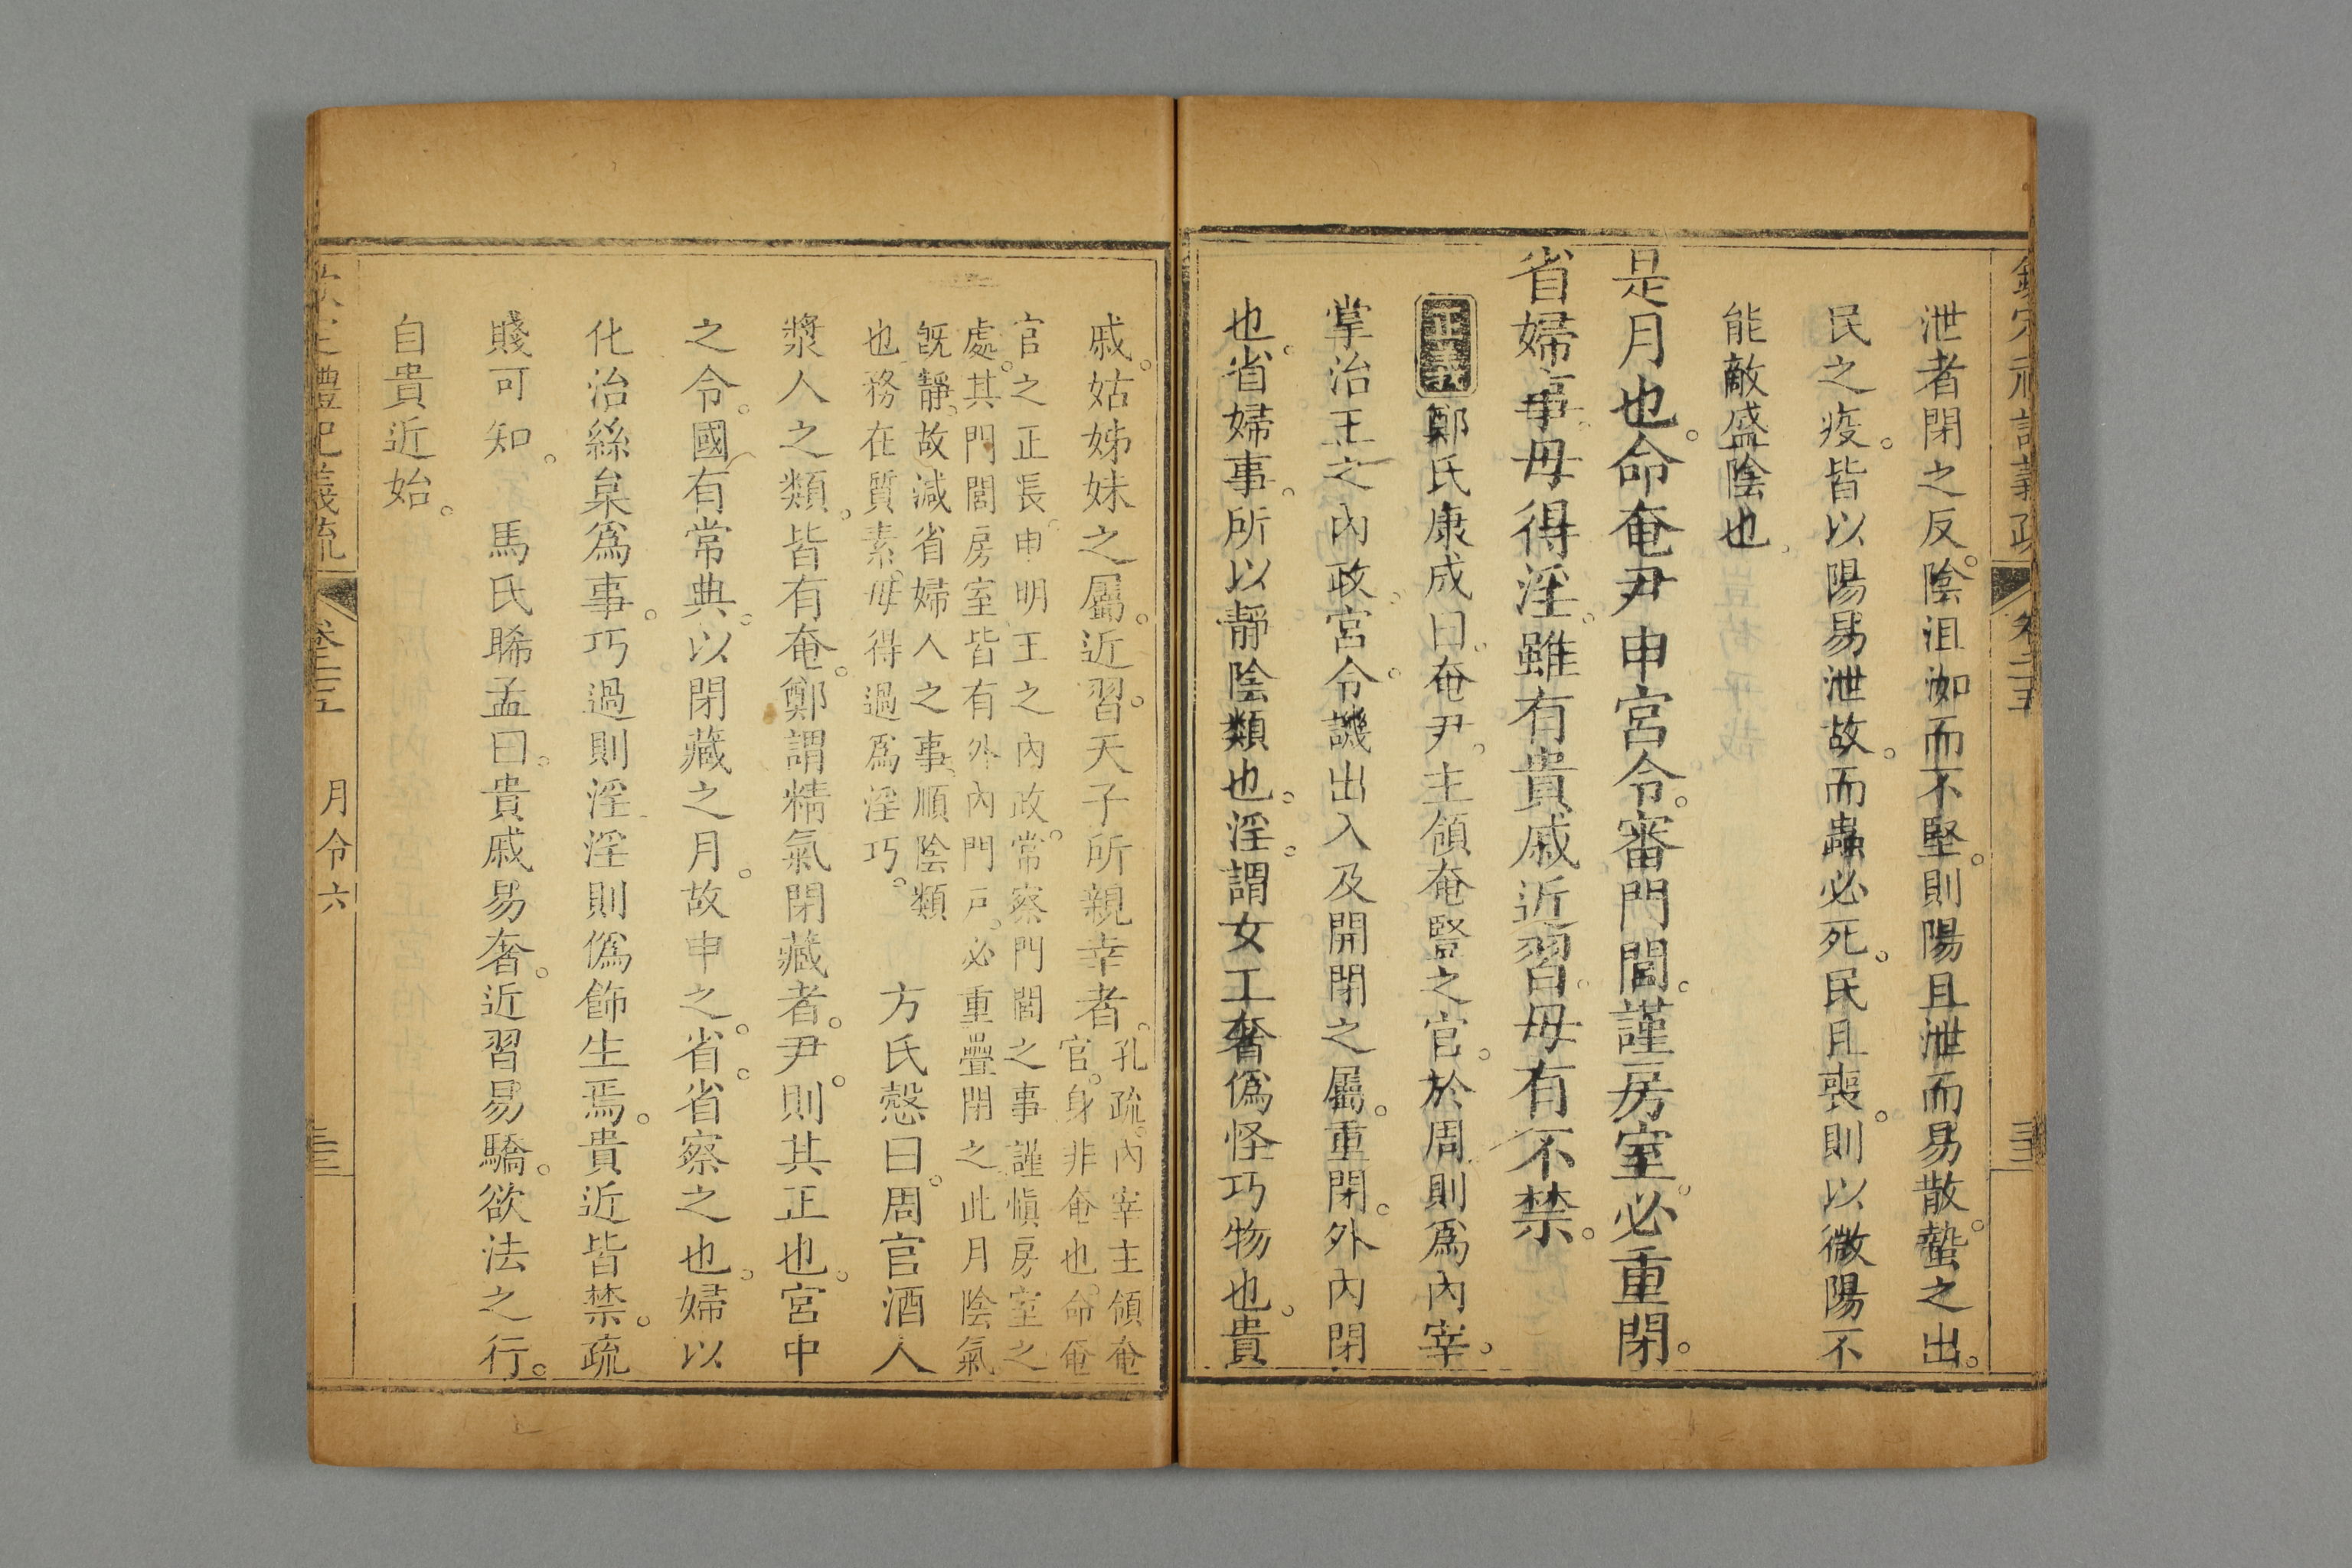 泄者閉之反。陰沮洳而不堅。則陽且泄而易散。蟄之出。
民之疫。皆以陽易泄故。而蟲必死。民且喪。則以微陽不
能敵盛陰也。
是月也。命奄尹申宮令。審門閭。謹房室。必重閉。
省婦事。毋得淫。雖有貴戚近習。毋有不禁。
正義 鄭氏康成曰。奄尹。主領奄豎之官。於周則爲內宰。
掌治王之內政。宮令。譏出入及開閉之屬。重閉。外內閉
也。省婦事。所以靜陰類也。淫。謂女工奢僞怪巧物也。貴
戚。姑姊妹之屬。近習。天子所親幸者。
孔疏。內宰主領奄
官。身非奄也。命奄
官之正長。申明王之內政。常察門閭之事。謹愼房室之
處。其門閭房室皆有外內門戶。必重疊閉之。此月陰氣
旣靜。故減省婦人之事。順陰類
也。務在質素。毋得過爲淫巧。
方氏慤曰。周官酒人
漿人之類。皆有奄。鄭謂精氣閉藏者。尹。則其正也。宮中
之令。國有常典。以閉藏之月。故申之。省。省察之也。婦以
化治絲枲爲事。巧過則淫。淫則僞飾生焉。貴近皆禁。疏
賤可知。 馬氏睎孟曰。貴戚易奢。近習易驕。欲法之行。
自貴近始。
禮記義疏 卷二五 月令六 三三